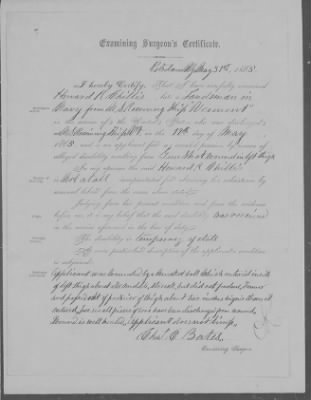 Examining Surgeon's Certificate.
Potsdam NY May 31st, 1865.
I hereby Certify, That I have carefully examined
Howard R. Whillis late a Landsman in
Navy from U.S. Steaming Ship Vermont
in the service of the United States, who was discharged
Steaming Ship on the 18th day of May
1865 and is an applicant for an invalid pension by reason of
alleged disability resulting from Gun Shot wound in left thigh
In my opinion the said Howard R. Whillis
is not at all incapacitated for obtaining his subsistence by
manual labor from the cause above stated.
Judging from his present condition, and from the evidence
before me, it is my belief that the said disability was received
in the service aforesaid in the line of duty.
The disability is temporary if at all
A more particular description of the applicant's condition
is subjoined:
Applicant was wounded by a musket ball which entered inside
of left thigh about the middle, but did not fracture femur
and passed out of posterior of thigh about two inches higher than it
entered, two small pieces of bone have been discharged from wound.
Wound is well healed, applicant does not limp.
Chas. C. Bates
Examining Surgeon